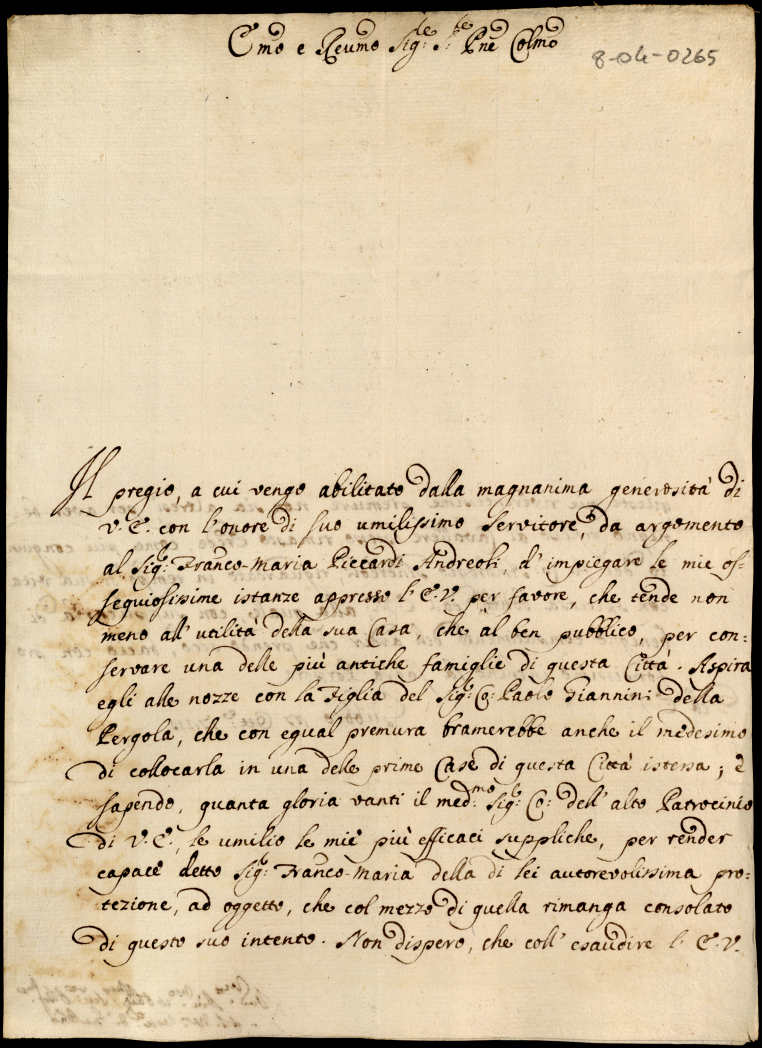 Emo e Reumo Sig:re S:re Pne Colmo
8-04-0265
Il pregio, a cui vengo abilitato dalla magnanima generosità di
V.E. con l'onore di suo umilissimo servitore, da argomento
al Sig:r Franco-Maria Piccardi Andreoli, d'impiegare le mie os=
sequiosissime istanze appresso l'E.V. per favore, che tende non
meno all'utilità della sua Casa, che al ben pubblico, per con=
servare una delle più antiche famiglie di questa Città. Aspira
egli alle nozze con la Figlia del Sig:r Co: Paolo Giannini della
Pergola, che con egual premura bramerebbe anche il medesimo
di collocarla in una delle prime Case di questa Città istessa; e
sapendo, quanta gloria vanti il med:mo Sig:r Co: dell'alto Patrocinio
di V.E., le umilio le mie più efficaci suppliche, per render
capace detto Sig:r Franco-Maria della di lei autorevolissima pro=
tezione, ad oggetto, che col mezzo di quella rimanga consolato
di questo suo intento. Non dispero, che coll'esaudire l'E.V.